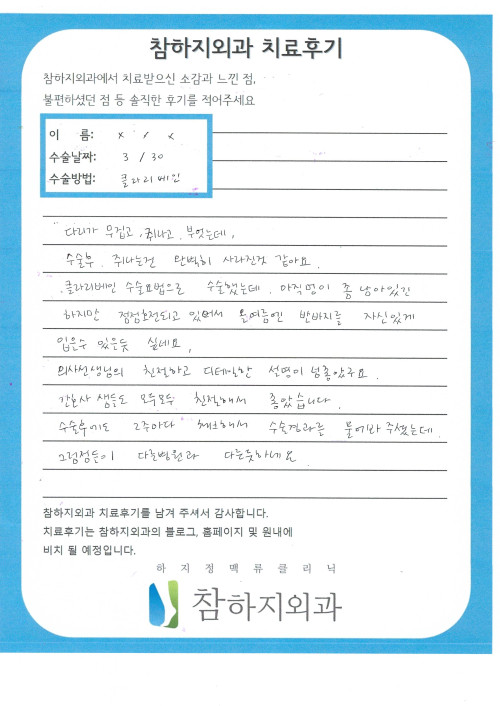 참하지외과 치료후기
참하지외과에서 치료받으신 소감과 느낀 점,
불편하셨던 점 등 솔직한 후기를 적어주세요
이 름: x / x
수술날짜: 3 / 30
수술방법: 클라리베인
다리가 무겁고, 쥐나고, 부엇는데,
수술후 쥐나는건 완벽히 사라진것 같아요.
클라리베인 수술요법으로 수술했는데. 아직멍이 좀 남아있긴
하지만 점점호전되고 있어서 올여름엔 반바지를 자신있게
입을수 있을듯 싶네요,
의사선생님의 친절하고 디테일한 설명이 넘좋았구요.
간호사 쌤들도 모두모두 친절해서 좋았습니다.
수술후에도 2주마다 체크해서 수술결과를 물어봐 주셨는데.
그런점들이 다른병원과 다른듯하네요
참하지외과 치료후기를 남겨 주셔서 감사합니다.
치료후기는 참하지외과의 블로그, 홈페이지 및 원내에
비치 될 예정입니다.
하지정맥류클리닉
참하지외과